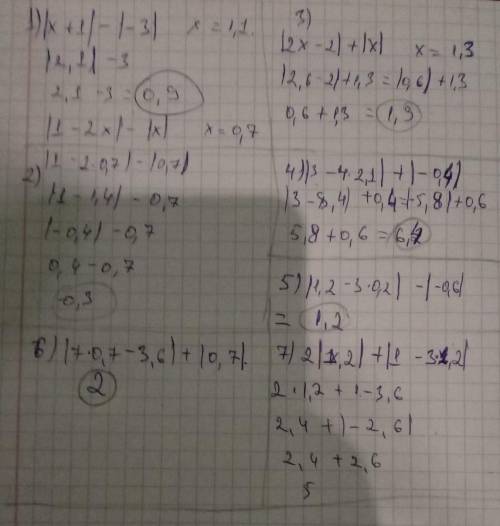 1) |x+1| - |-3|   x = 1,1.
|2,1| - 3
2,1 - 3 = 0,9
|1 - 2x| - |x|   x = 0,7
2) |1 - 2·0,7| - |0,7|
|1 - 1,4| - 0,7
|-0,4| - 0,7
0,4 - 0,7
-0,3
3)
|2x - 2| + |x|   x = 1,3
|2,6 - 2| + 1,3 = |0,6| + 1,3
0,6 + 1,3 = 1,9
4) |3 - 4·2,1| + |-0,4|
|3 - 8,4| + 0,4 = |-5,8| + 0,6
5,8 + 0,6 = 6,4
5) |1,2 - 3·0,2| - |-0,6|
= 1,2
6) |7·0,7 - 3,6| + |0,7|.
2
7) 2|1,2| + |1 - 3·1,2|
2·1,2 + 1 - 3,6
2,4 + |-2,6|
2,4 + 2,6
5